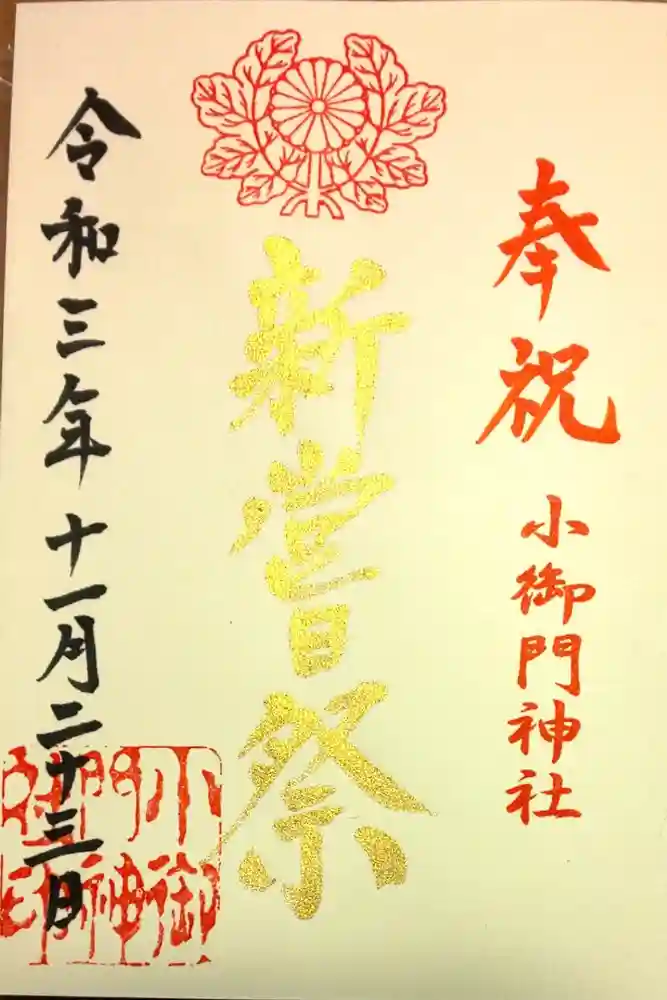 奉祝
小御門神社
新嘗祭
令和三年十一月二十三日
小御門神社印